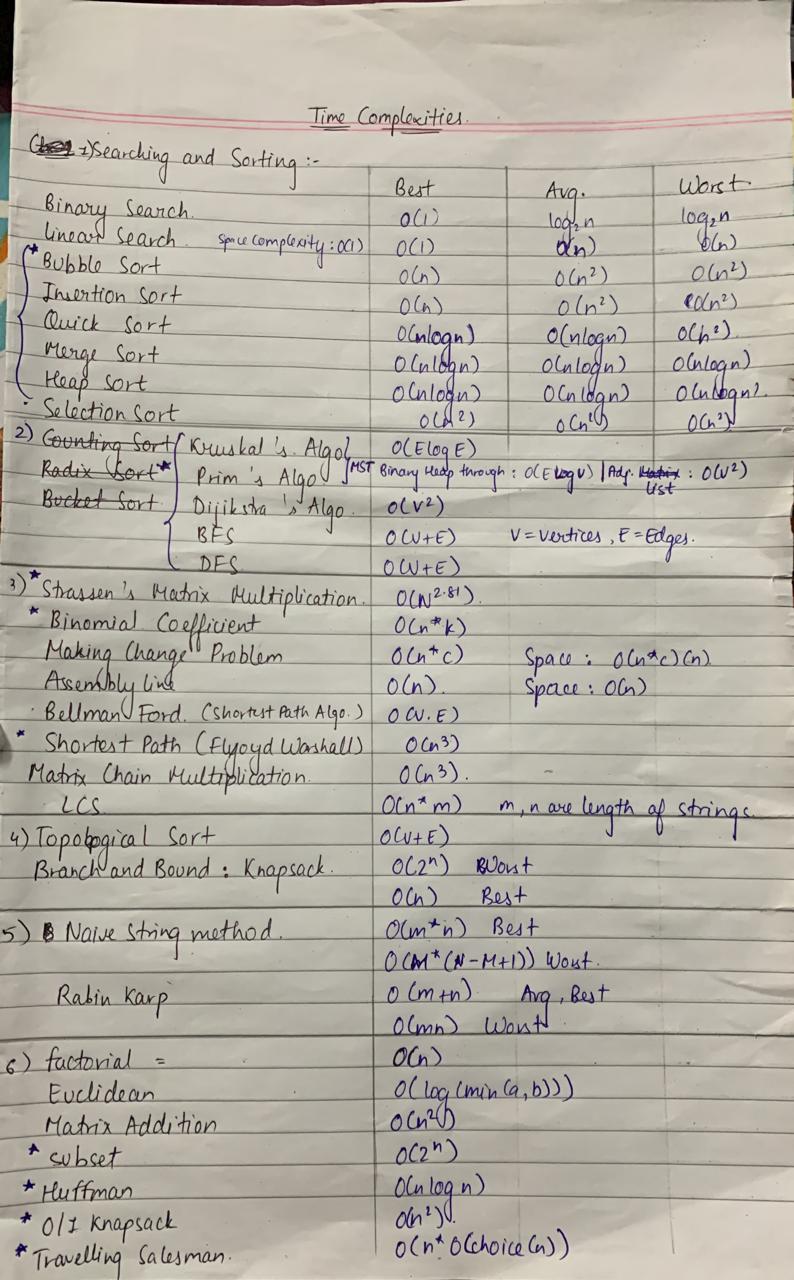 Time Complexities.
1) Searching and Sorting :-
Best Avg. Worst
Binary Search. O(1) log₂n log₂n
Linear Search. Space Complexity : O(1) O(1) O(n) O(n)
* Bubble Sort O(n) O(n²) O(n²)
Insertion Sort O(n) O(n²) O(n²)
Quick Sort O(nlogn) O(nlogn) O(n²).
Merge Sort O(nlogn) O(nlogn) O(nlogn)
Heap Sort O(nlogn) O(nlogn) O(nlogn).
· Selection Sort O(n²) O(n²) O(n²)
2) Counting Sort Kruskal's. Algo O(ElogE)
Radix Sort * Prim's Algo MST Binary Heap through : O(ElogV) | Adj. Matrix List : O(V²)
Bucket Sort Dijikstra's Algo. O(V²)
BFS O(V+E) V = Vertices , E = Edges.
DFS O(V+E)
3) * Strassen's Matrix Multiplication. O(N^2.81).
* Binomial Coefficient O(n*k)
Making Change Problem O(n*c) Space : O(n*c)(n)
Assembly line O(n). Space : O(n)
· Bellman Ford. (Shortest Path Algo.) O(V.E)
* Shortest Path (Flyoyd Warshall) O(n³)
Matrix Chain Multiplication. O(n³). -
LCS O(n*m) m,n are length of strings.
4) Topological Sort O(V+E)
Branch and Bound : Knapsack. O(2ⁿ) Worst
O(n) Best
5) Naive String method. O(m*n) Best
O(M*(N-M+1)) Worst.
Rabin Karp O(m+n) Avg, Best
O(mn) Worst
6) factorial = O(n)
Euclidean O(log(min(a,b)))
Matrix Addition O(n²)
* subset O(2ⁿ)
* Huffman O(nlogn)
* 0/1 Knapsack O(n²).
* Travelling Salesman. O(n* O(choice(n))